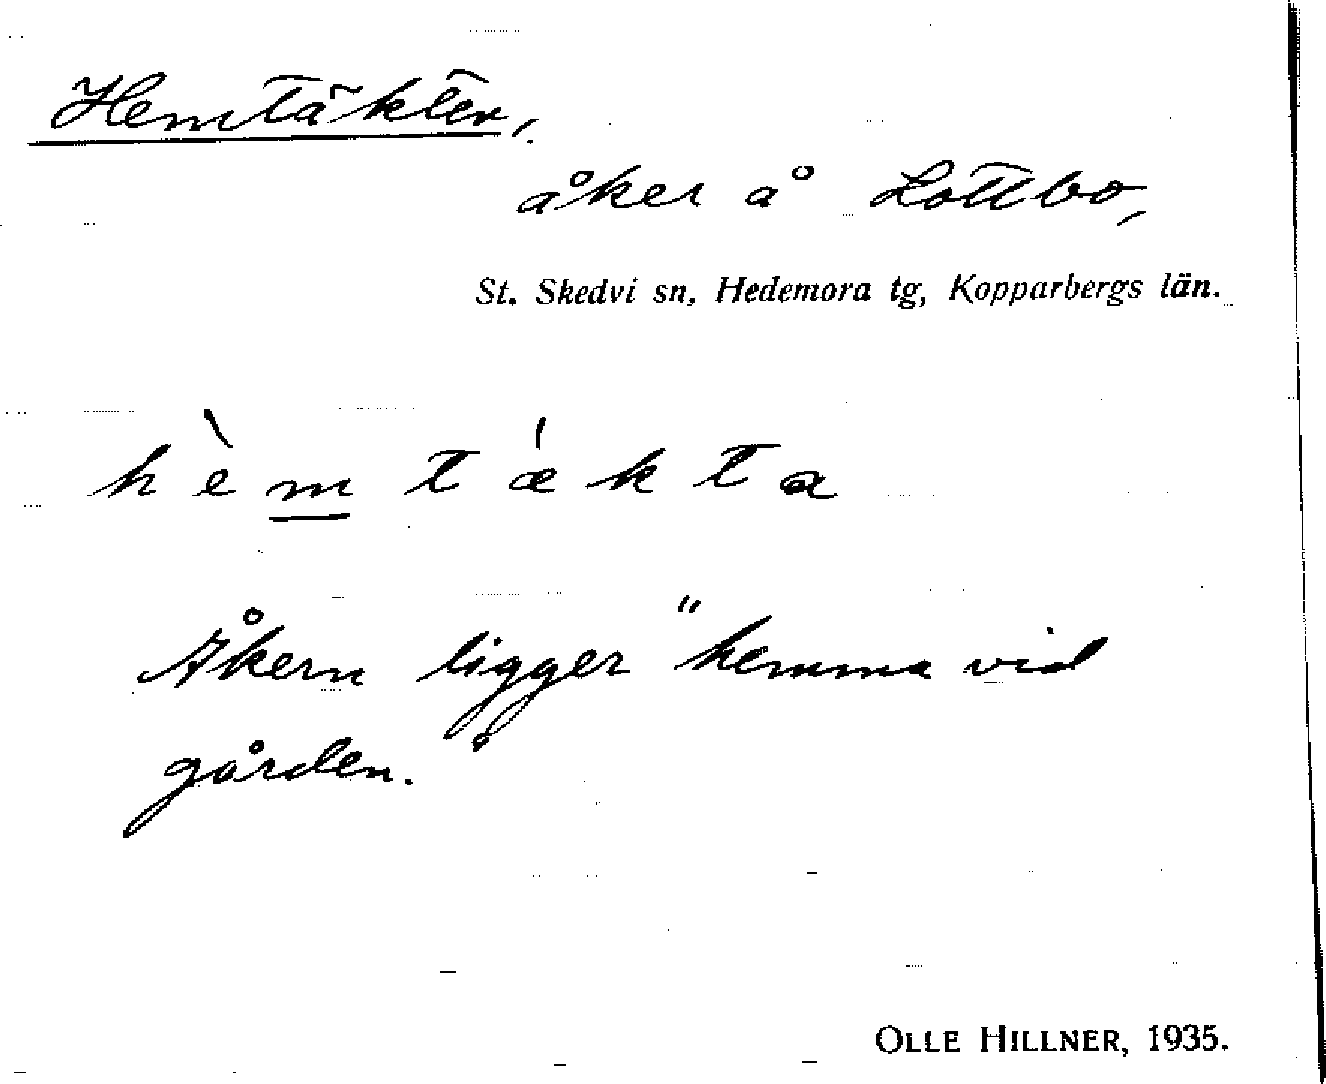 Hemtäkter,
åker å Lottbo,
St. Skedvi sn, Hedemora tg, Kopparbergs län.
hèmtækta
Åkern ligger "hemma vid
gården."
OLLE HILLNER, 1935.